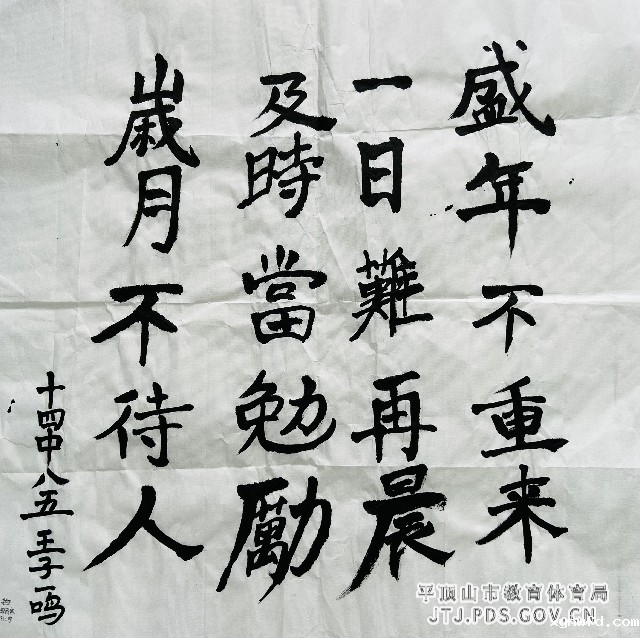 盛年不重来
一日難再晨
及時當勉勵
歲月不待人
十四中八五王子一鸣
平顶山市教育体育局
JTJ.PDS.GOV.CN